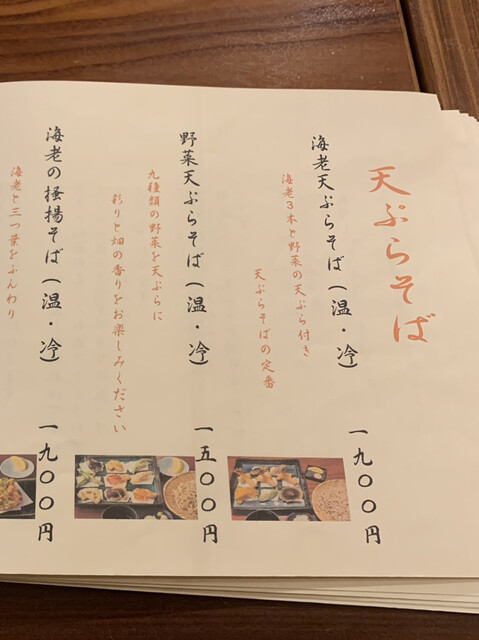 天ぷらそば
海老天ぷらそば(温・冷) 一九〇〇円
海老3本と野菜の天ぷら付き
天ぷらそばの定番
野菜天ぷらそば(温・冷) 一五〇〇円
九種類の野菜を天ぷらに
彩りと畑の香りをお楽しみください
海老の掻揚そば(温・冷) 一九〇〇円
海老と三つ葉をふんわり